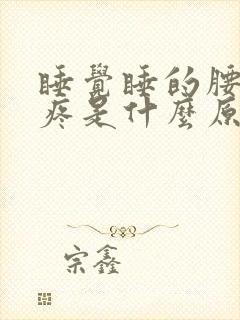 睡覺睡的腰
疼是什麼原
宗鑫